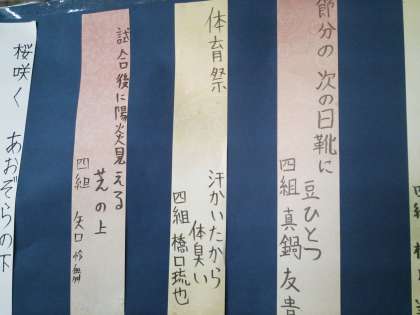 節分の 次の日靴に
豆ひとつ
四組 真鍋 友貴
体育祭
汗かいたから
体臭い
四組 橋口琉也
試合後に陽炎見える
芝の上
四組 矢口
桜咲く あおぞらの下